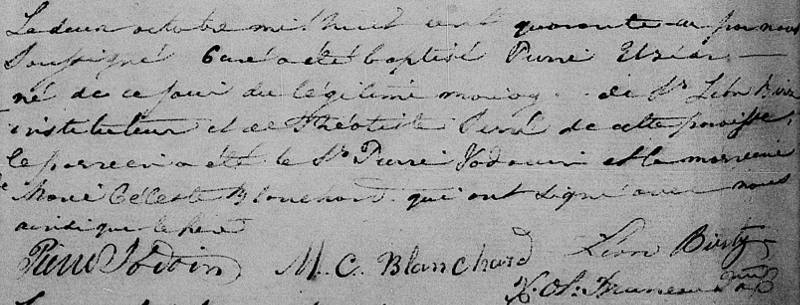 Le deux octobre mil huit cent quarante par nous
Soussigné Curé a été baptisé Pierre Uzéar
né de ce jour du légitime mariag de Sr Léon
instituteur et de Théotiste de cette paroisse,
le parrein a été le Sr Pierre Jodouin et la marreine
Marie Céleste Blanchard qui ont signé avec nous
ainsi que le père
Pierre Jodoin M. C. Blanchard Léon
Bruneau